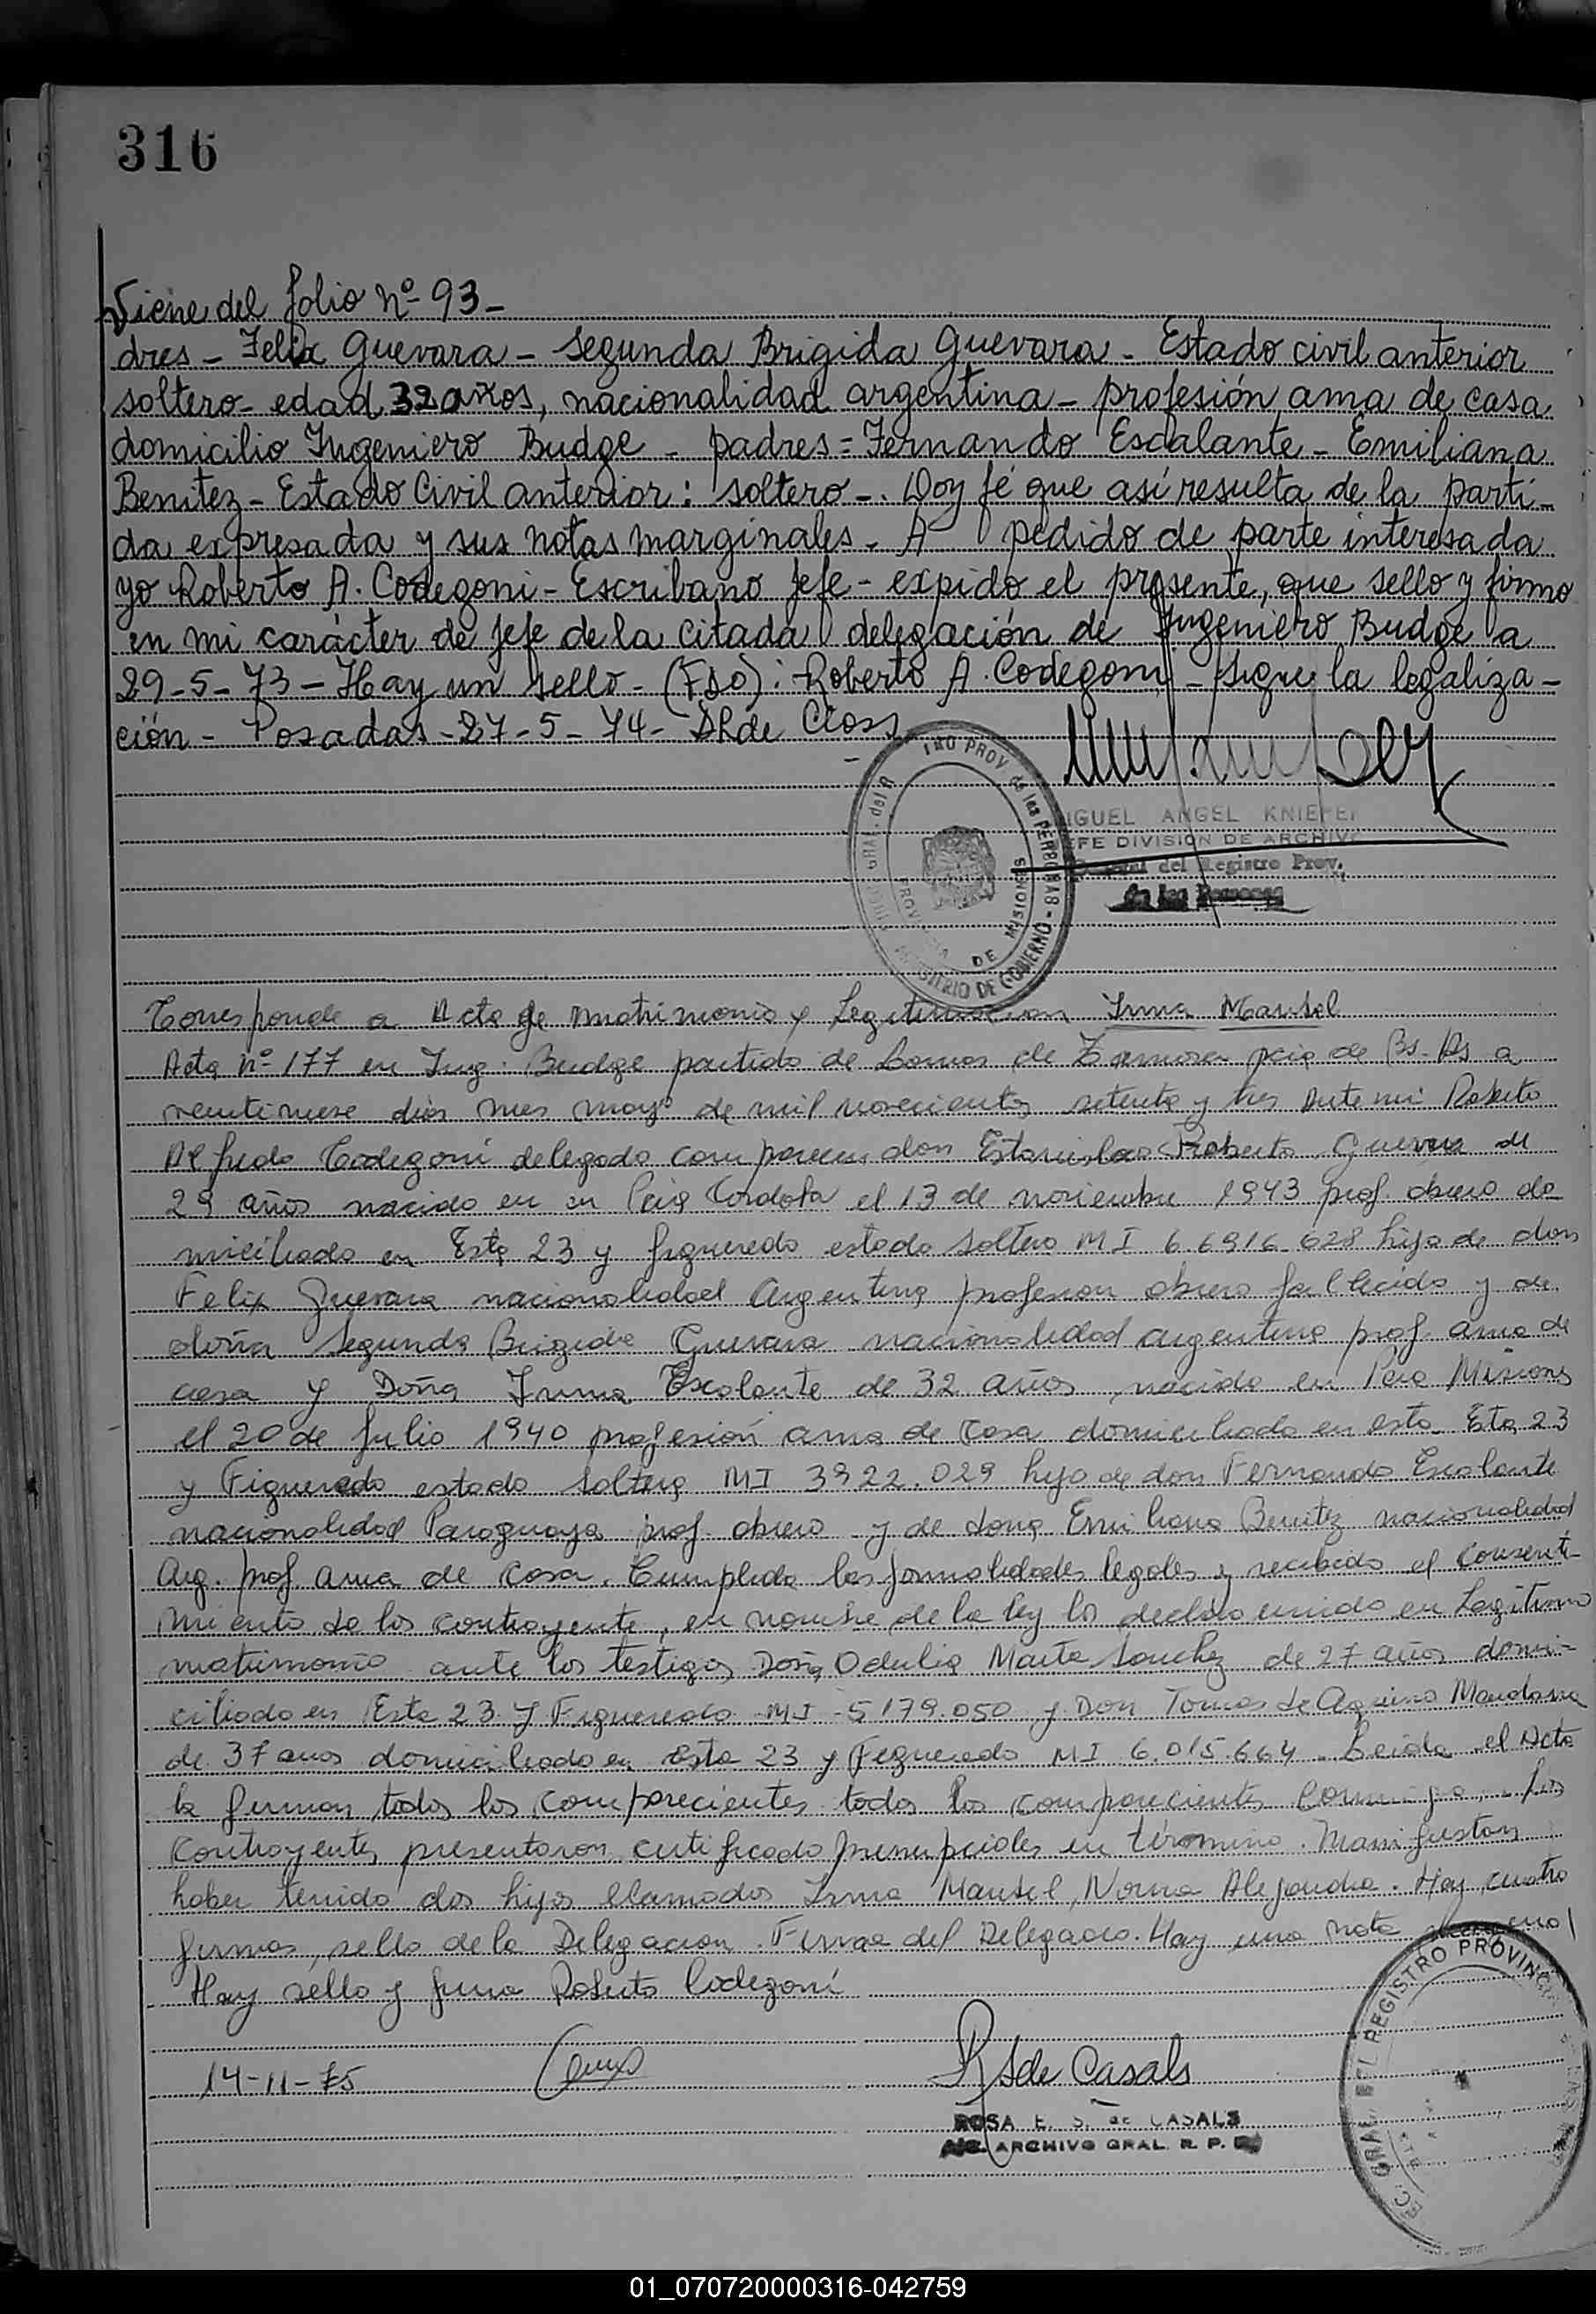 316
Viene del folio nº 93-
dres - Felix Guevara - Segunda Brigida Guevara - Estado civil anterior
soltero - edad 32 años, nacionalidad argentina - profesión ama de casa
domicilio Ingeniero Budge - padres = Fernando Escalante - Emiliana
Benitez - Estado Civil anterior: soltero -. Doy fé que así resulta de la parti-
da expresada y sus notas marginales. A pedido de parte interesada
yo Roberto A. Codegoni - Escribano Jefe - expido el presente, que sello y firmo
en mi carácter de Jefe de la citada delegación de Ingeniero Budge a
29-5-73 - Hay un sello - (Fdo): Roberto A. Codegoni - Sigue la legaliza-
ción - Posadas - 27-5-74 -
MIGUEL ANGEL
JEFE DIVISION DE ARCHIVO
General del Registro Prov.
de las Personas
PROV. de las PERSONAS - MINISTERIO DE GOBIERNO
PROVINCIA DE MISIONES
Corresponde a Acta de matrimonio y Legitimacion Irma Marisel
Acta nº 177 en Ing. Budge partido de Lomas de Zamora pcia de Bs. As a
veintinueve dias mes mayo de mil novecientos setenta y tres Ante mi Roberto
Alfredo Codegoni delegado comparecen don Estanislao Roberto Guevara de
29 años nacido en en Pcia Cordoba el 13 de noviembre 1943 prof. obrero do
miciliado en Esta 23 y Figueredo estado soltero MI 6.6916.628 hijo de don
Felix Guevara nacionalidad Argentina profesion obrero fallecido y de
doña Segunda Brigida Guevara nacionalidad argentina prof. ama de
casa y Doña Irma Escalante de 32 años, nacida en Pcia Misiones
el 20 de Julio 1940 profesión ama de casa domiciliada en esta Esta 23
y Figueredo estado soltera MI 3922.029 hija de don Fernando Escalante
nacionalidad Paraguaya prof. obrero y de dona Emiliana Benitez nacionalidad
Arg. prof. ama de casa. Cumplida las formalidades legales y recibido el consenti-
miento de los contrayente, en nombre de la ley los declaro unido en Legitimo
matrimonio ante los testigos Doña Odulia Marta Sanchez de 27 años domi-
ciliado en Esta 23 y Figueredo MI 5179.050 y Don Tomas de Aquino
de 37 anos domiciliado en Esta 23 y Figueredo MI 6.015.664. Leida el Acta
la firman todos los comparecientes todos los comparecientes conmigo, Los
contrayentes presentaron certificado prenupciales en término. Manifiestan
haber tenido dos hijos llamados Irma Marisel, Norma Alejandra. Hay cuatro
firmas, sello de la Delegacion. Firma del Delegado. Hay una nota marginal
Hay sello y firma Roberto Codegoni
14-11-75
R S de Casals
ROSA E. S. de CASALS
ARCHIVO GRAL. R. P.
GRAL. DEL REGISTRO PROVINCIAL
01_070720000316-042759